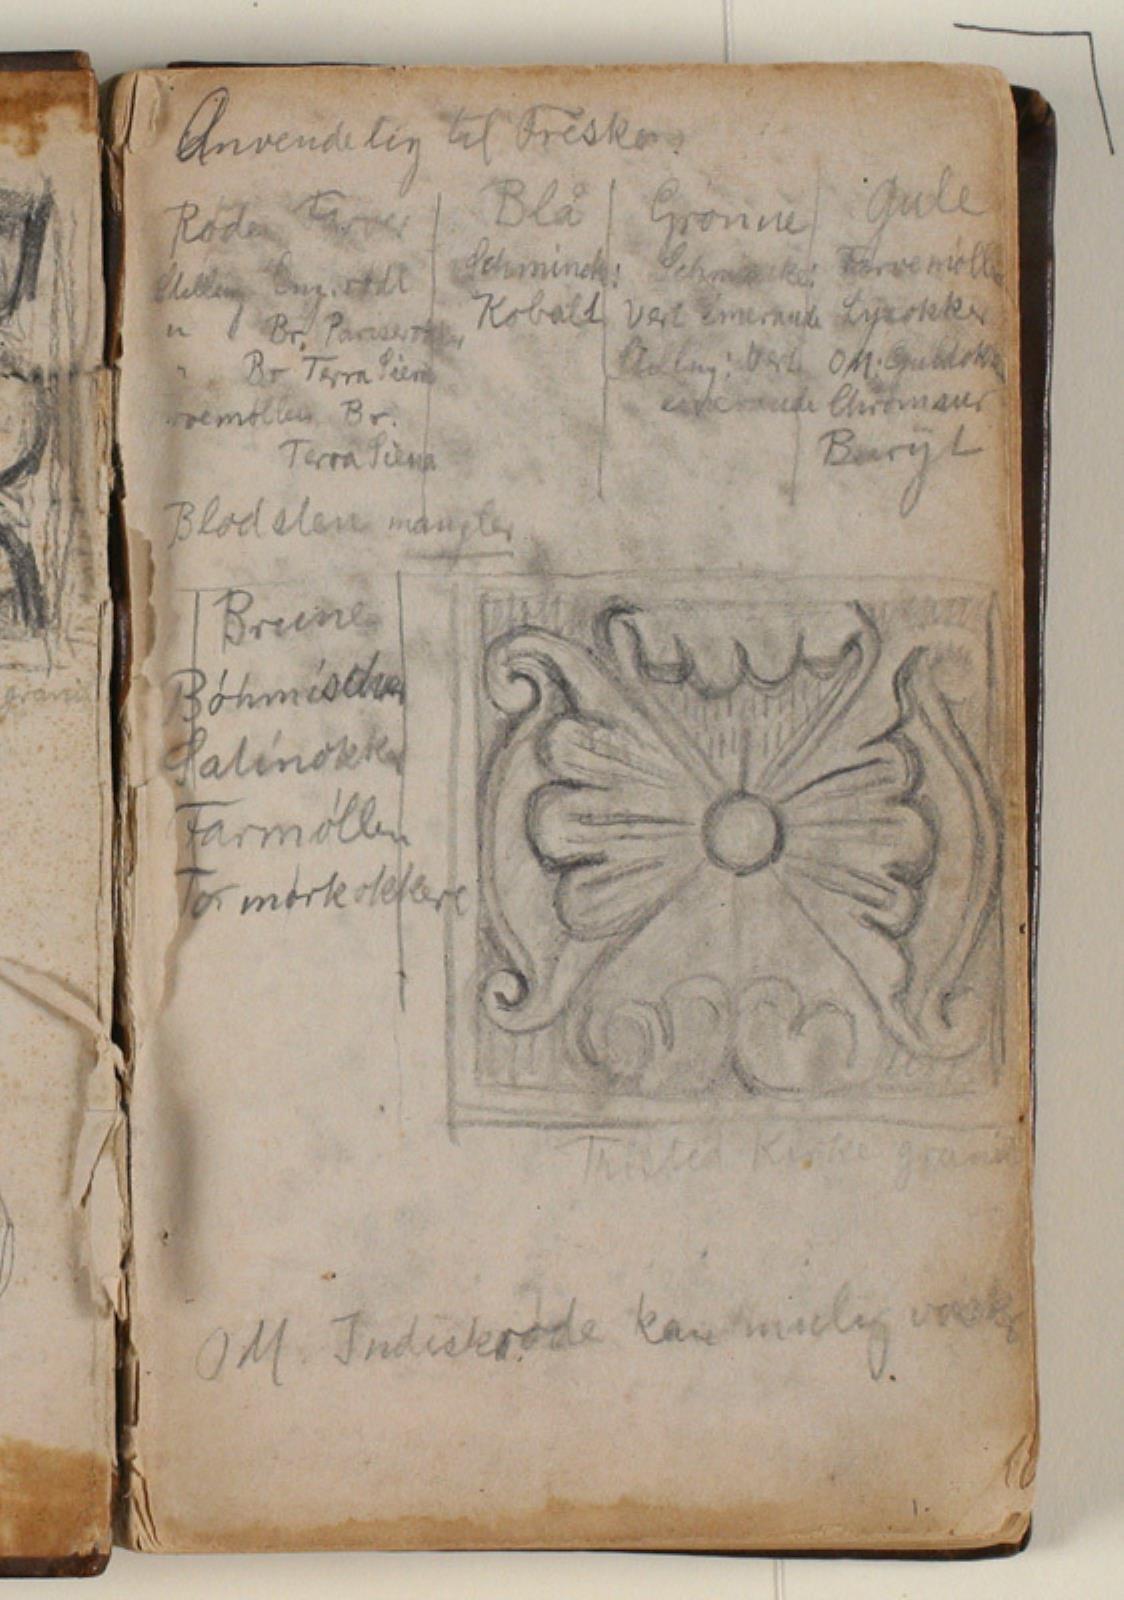 Anvendelig til Fresko.
Røde Farver
Eng. rødt
" Br. Pariserøkker
" Br Terra Siena
Br.
Terra Siena
Blå
Schminck:
Kobalt
Grønne
Schmincke:
Vert emeraude
Vert
emeraude
Gule
Farvemølle
Lysokker
OM: Guldokk
Chromgul
Baryt
Blodsten mangler
Brune
Böhmische
Satinokker
Farmøllen
For mørk okkere
granit
Thisted Kirke granit
OM. Indiskrøde kan mulig